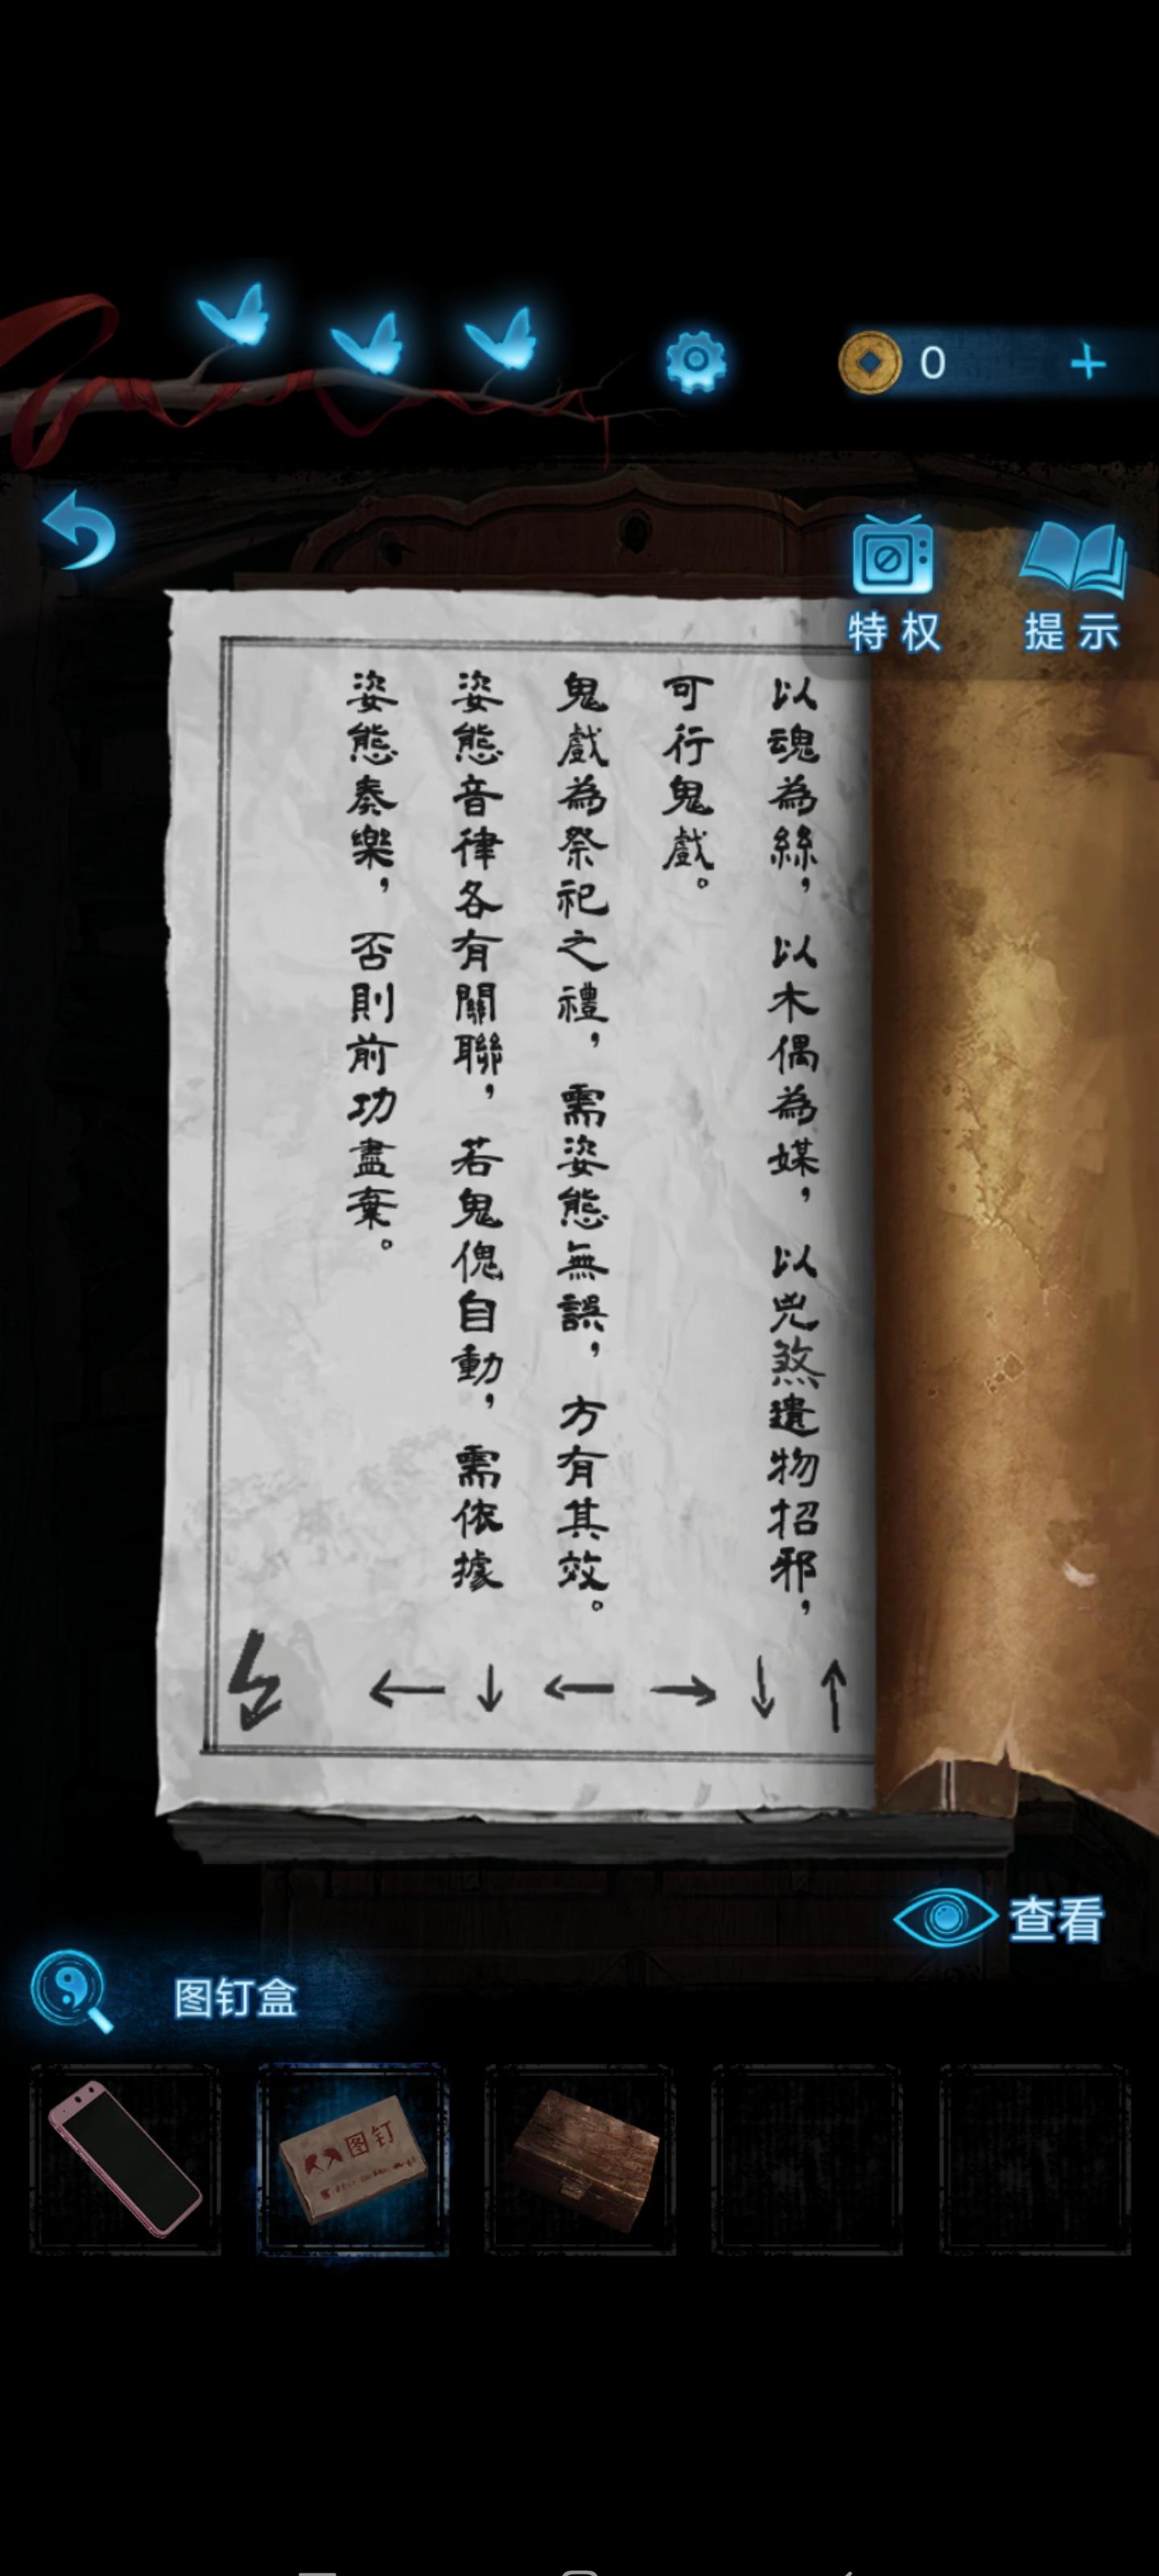 0
特权
提示
以魂為絲，以木偶為媒，以兇煞遺物招邪，
可行鬼戲。
鬼戲為祭祀之禮，需姿態無誤，方有其效。
姿態音律各有關聯，若鬼傀自動，需依據
姿態奏樂，否則前功盡棄。
← ↓ ← → ↓ ↑
查看
图钉盒
图钉